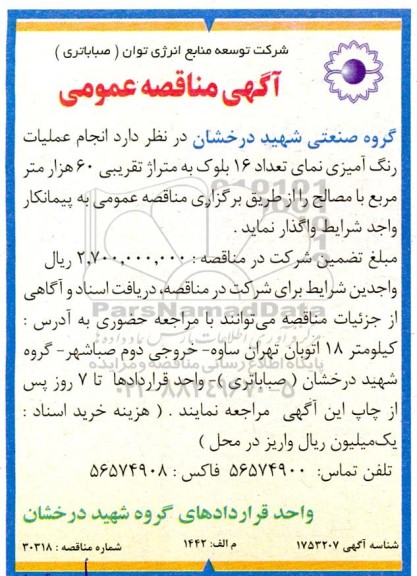 شرکت توسعه منابع انرژی توان ( صباباتری )
آگهی مناقصه عمومی
گروه صنعتی شهید درخشان در نظر دارد انجام عملیات
رنگ آمیزی نمای تعداد ۱۶ بلوک به متراژ تقریبی ۶۰ هزار متر
مربع با مصالح را از طریق برگزاری مناقصه عمومی به پیمانکار
واجد شرایط واگذار نماید .
مبلغ تضمین شرکت در مناقصه : ۲,۷۰۰,۰۰۰,۰۰۰ ریال
واجدین شرایط برای شرکت در مناقصه، دریافت اسناد و آگاهی
از جزئیات مناقصه می‌توانند با مراجعه حضوری به آدرس :
کیلومتر ۱۸ اتوبان تهران ساوه- خروجی دوم صباشهر- گروه
شهید درخشان ( صباباتری )- واحد قراردادها تا ۷ روز پس
از چاپ این آگهی مراجعه نمایند . ( هزینه خرید اسناد :
یک‌میلیون ریال واریز در محل )
تلفن تماس: ۵۶۵۷۴۹۰۰ فاکس : ۵۶۵۷۴۹۰۸
واحد قراردادهای گروه شهید درخشان
شناسه آگهی ۱۷۵۳۲۰۷ م الف: ۱۴۴۲ شماره مناقصه : ۳۰۳۱۸
ParsNamadData
پایگاه اطلاع رسانی مناقصه و مزایده